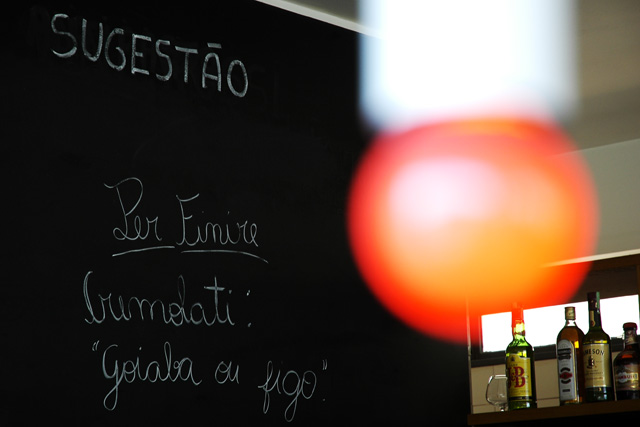 SUGESTÃO
Per Finire
Crumolati:
"Goiaba ou figo"
J&B